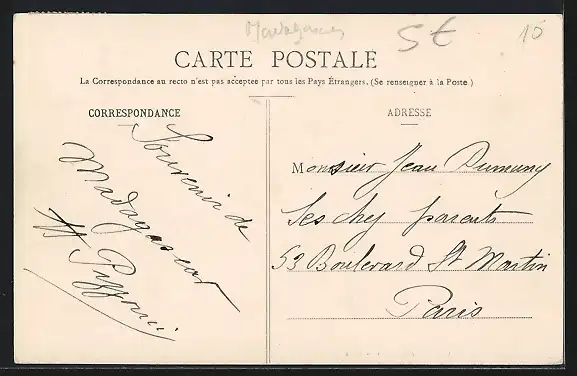 Madagascar
5€
15
CARTE POSTALE
La Correspondance au recto n'est pas acceptée par tous les Pays Étrangers. (Se renseigner à la Poste.)
CORRESPONDANCE
Souvenir de
Madagascar
ADRESSE
Monsieur Jean
Ses chez parents
53 Boulevard St Martin
Paris